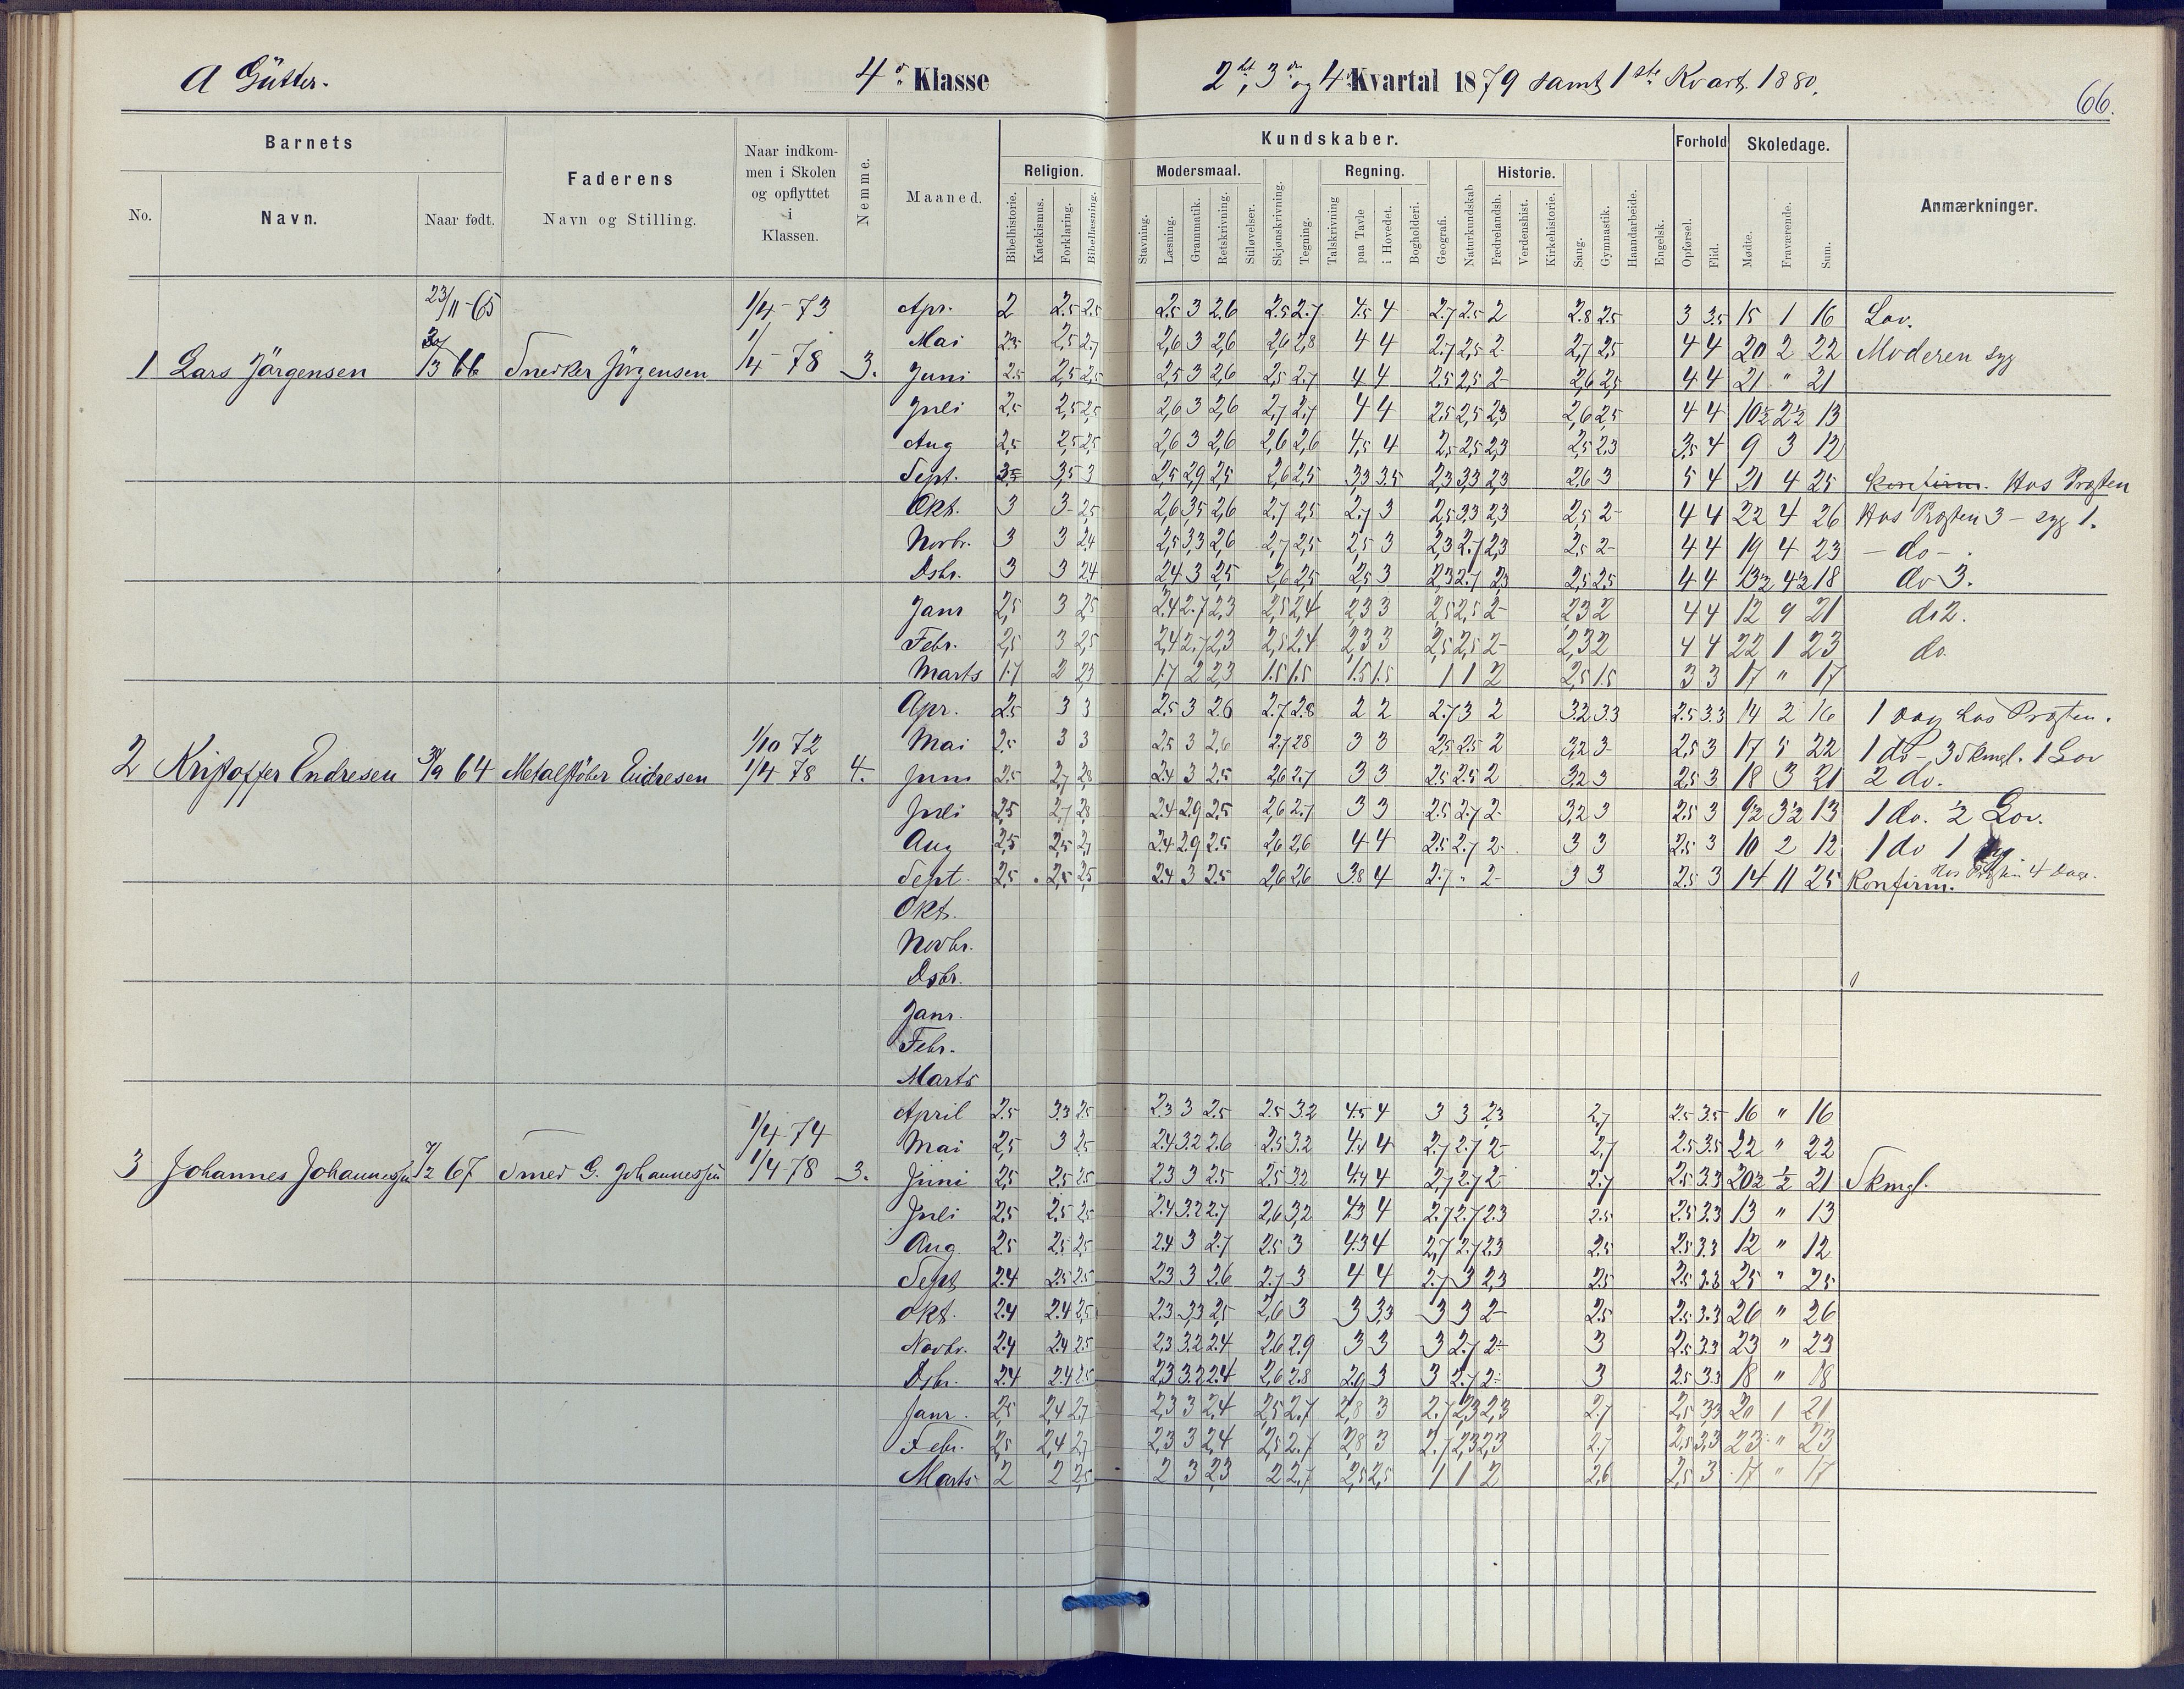 A Gütter.
4de Klasse
2det, 3die og 4de Kvartal 1879 samt 1ste Kvart. 1880.
66.
Barnets
No.
Navn.
Naar født.
Faderens
Navn og Stilling.
Naar indkom-
men i Skolen
og opflyttet
i
Klassen.
Nemme.
Maaned.
Kundskaber.
Religion.
Bibelhistorie.
Katekismus.
Forklaring.
Bibellæsning.
Modersmaal.
Stavning.
Læsning.
Grammatik.
Retskrivning.
Stiløvelser.
Skjønskrivning.
Tegning.
Regning.
Talskrivning
paa Tavle
i Hovedet.
Bogholderi.
Geografi.
Naturkundskab
Historie.
Fædrelandsh.
Verdenshist.
Kirkehistorie.
Sang.
Gymnastik.
Haandarbeide.
Engelsk.
Forhold
Opførsel.
Flid.
Skoledage.
Mødte.
Fraværende.
Sum.
Anmærkninger.
23/11-65 1/4-73 Apr. 2 2.5 2.5 2.5 3 2.6 2.5 2.7 4.5 4 2.7 2.5 2 2.8 2.5 3 3.5 15 1 16 Lov.
Mai 2.5 2,5 2,7 2,6 3 2,6 2,6 2,8 4 4 2.7 2,5 2 2,7 2,5 4 4 20 2 22 Moderen syg
1 Lars Jörgensen 66 Snedker Jörgensen 1/4-78 3. Juni 2.5 2,5 2,5 2,5 3 2,6 2,5 2.7 4 4 2.5 2,5 2 2,6 2,5 4 4 21 " 21
Juli 2,5 2,5 2,5 2,6 3 2,6 2,7 2.7 4 4 2.5 2,5 2,3 2,6 2,5 4 4 10½ 2½ 13
Aug 2,5 2,5 2,5 2,6 3 2,6 2,6 2,6 4,5 4 2,5 2,5 2,3 2,5 2,3 3,5 4 9 3 12
Sept. 3,5 3 2,5 2,9 2,5 2,6 2,5 3,3 3.5 2,3 3,3 2,3 2,6 3 5 4 21 4 25 Konfirm. Hos Præsten
Okt. 3 3 2,5 2,6 3,5 2,6 2.7 2,5 2.7 3 2,5 3.3 2,3 2,5 2 4 4 22 4 26 Hos Præsten 3 - syg 1.
Novbr. 3 3 2,4 2,5 3,3 2,6 2,7 2,5 2,5 3 2,3 2.7 2,3 2,5 2 4 4 19 4 23 - do -
Dsbr. 3 3 2,4 2,4 3 2,5 2,6 2,5 2,5 3 2,3 2.7 2,3 2,5 2,5 4 4 13½ 4½ 18 do 3.
Janr 2,5 3 2,5 2.4 2.7 2,3 2,5 2,4 2,3 3 2,5 2,5 2 2,3 2 4 4 12 9 21 do 2.
Febr. 2,5 3 2,5 2,4 2,7 2,3 2,5 2.4 2,3 3 2,5 2,5 2 2,3 2 4 4 22 1 23 do
Marts 1.7 2 2,3 1.7 2 2,3 1.5 1.5 1.5 1.5 1 1 2 2,5 1.5 3 3 17 " 17
Apr. 2.5 3 3 2.5 3 2.6 2.7 2.8 2 2 2.7 3 2 3.2 3.3 2.5 3.3 14 2 16 1 Dag hos Præsten.
1/10 72 Mai 2.5 3 3 2.5 3 2,6 2.7 2.8 3 3 2,5 2.5 2 3,2 3 2,5 3 17 5 22 1 do - 3 Skmgl. 1 Lov
2 Kristoffer Endresen 64 Metalstöber Endresen 1/4 78 4. Juni 2.5 2,7 2,8 2.4 3 2.5 2,6 2.7 3 3 2.5 2.5 2 3,2 3 2.5 3 18 3 21 2 do.
Juli 2,5 2,7 2,8 2.4 2.9 2,5 2,6 2.7 3 3 2.5 2.7 2 3,2 3 2.5 3 9½ 3½ 13 1 do. ½ Lov.
Aug 2,5 2,5 2,7 2.4 2.9 2.5 2,6 2,6 4 4 2.5 2.7 2 3 3 2.5 3 10 2 12 1 do 1
Sept. 2,5 2,5 2,5 2.4 3 2.5 2,6 2,6 3.8 4 2.7 " 2 3 3 2.5 3 14 11 25 Konfirm. Hos Præsten 4 Dage.
Okt.
Novbr.
Dsbr.
Janr.
Febr.
Marts
April 2.5 3.3 2.5 2.3 3 2.5 2.5 3.2 4.5 4 3 3 2,3 2,7 2.5 3.5 16 " 16
1/4 74 Mai 2,5 3 2.5 2.4 3.2 2.6 2.5 3.2 4.4 4 2.7 2.7 2 2,7 2.5 3.5 22 " 22
3 Johannes Johannessen 67 Smed G. Johannessen 1/4-78 3. Juni 2,5 2.5 2.5 2.3 3 2.5 2.5 3.2 4.4 4 2,7 2.7 2 2.7 2.5 3.3 20½ ½ 21 Skmgl.
Juli 2.5 2.5 2.5 2.4 3.2 2.7 2,6 3,2 4.3 4 2.7 2.7 2.3 2.5 2.5 3.3 13 " 13
Aug. 2.5 2.5 2.5 2.4 3 2.7 2.5 3 4.3 4 2,7 2.7 2.3 2.5 2.5 3.3 12 " 12
Sept 2.4 2.5 2.5 2.3 3 2.6 2.7 3 4 4 2.7 3 2,3 2.5 2.5 3.3 25 " 25
Okt. 2.4 2.4 2,5 2.3 3,3 2,5 2,6 3 3 3,3 3 3 2 2.5 2.5 3.3 26 " 26
Novbr. 2.4 2.4 2.5 2.3 3.2 2.4 2.6 2.9 3 3 3 2.7 2 3 2.5 3.3 23 " 23
Dsbr. 2.4 2.4 2.5 2.3 3.2 2.4 2,6 2.8 2.9 3 3 2.7 2 3 2.5 3.3 18 " 18
Janr. 2,5 2,4 2.7 2,3 3 2,4 2,5 2,7 2,8 3 2.7 2,3 2,3 2.7 2,5 3,3 20 1 21
Febr. 2,5 2,4 2,7 2,3 3 2,4 2,5 2.7 2,8 3 2.7 2,3 2,3 2.7 2,5 3,3 23 " 23
Marts 2 2 2,5 2 3 2,3 2 2,7 2,5 2,5 1 1 2 2,6 2,5 3 17 " 17